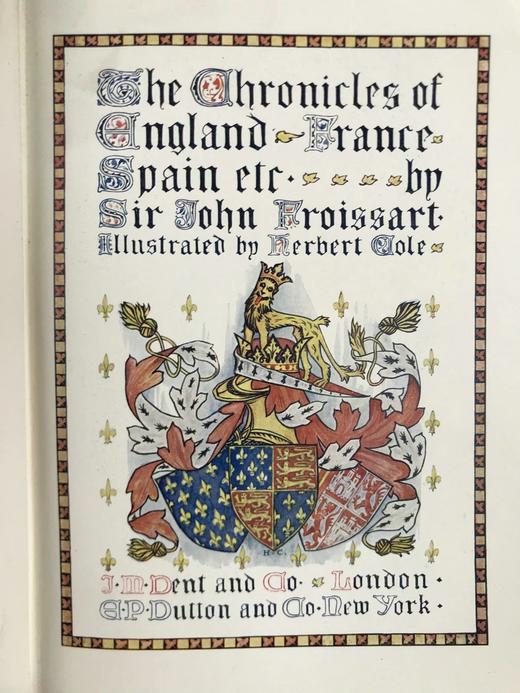 The Chronicles of
England France
Spain etc. by
Sir John Froissart.
Illustrated by Herbert Cole
H·C·
J·M·Dent and Co· London·
E·P·Dutton and Co·New York·